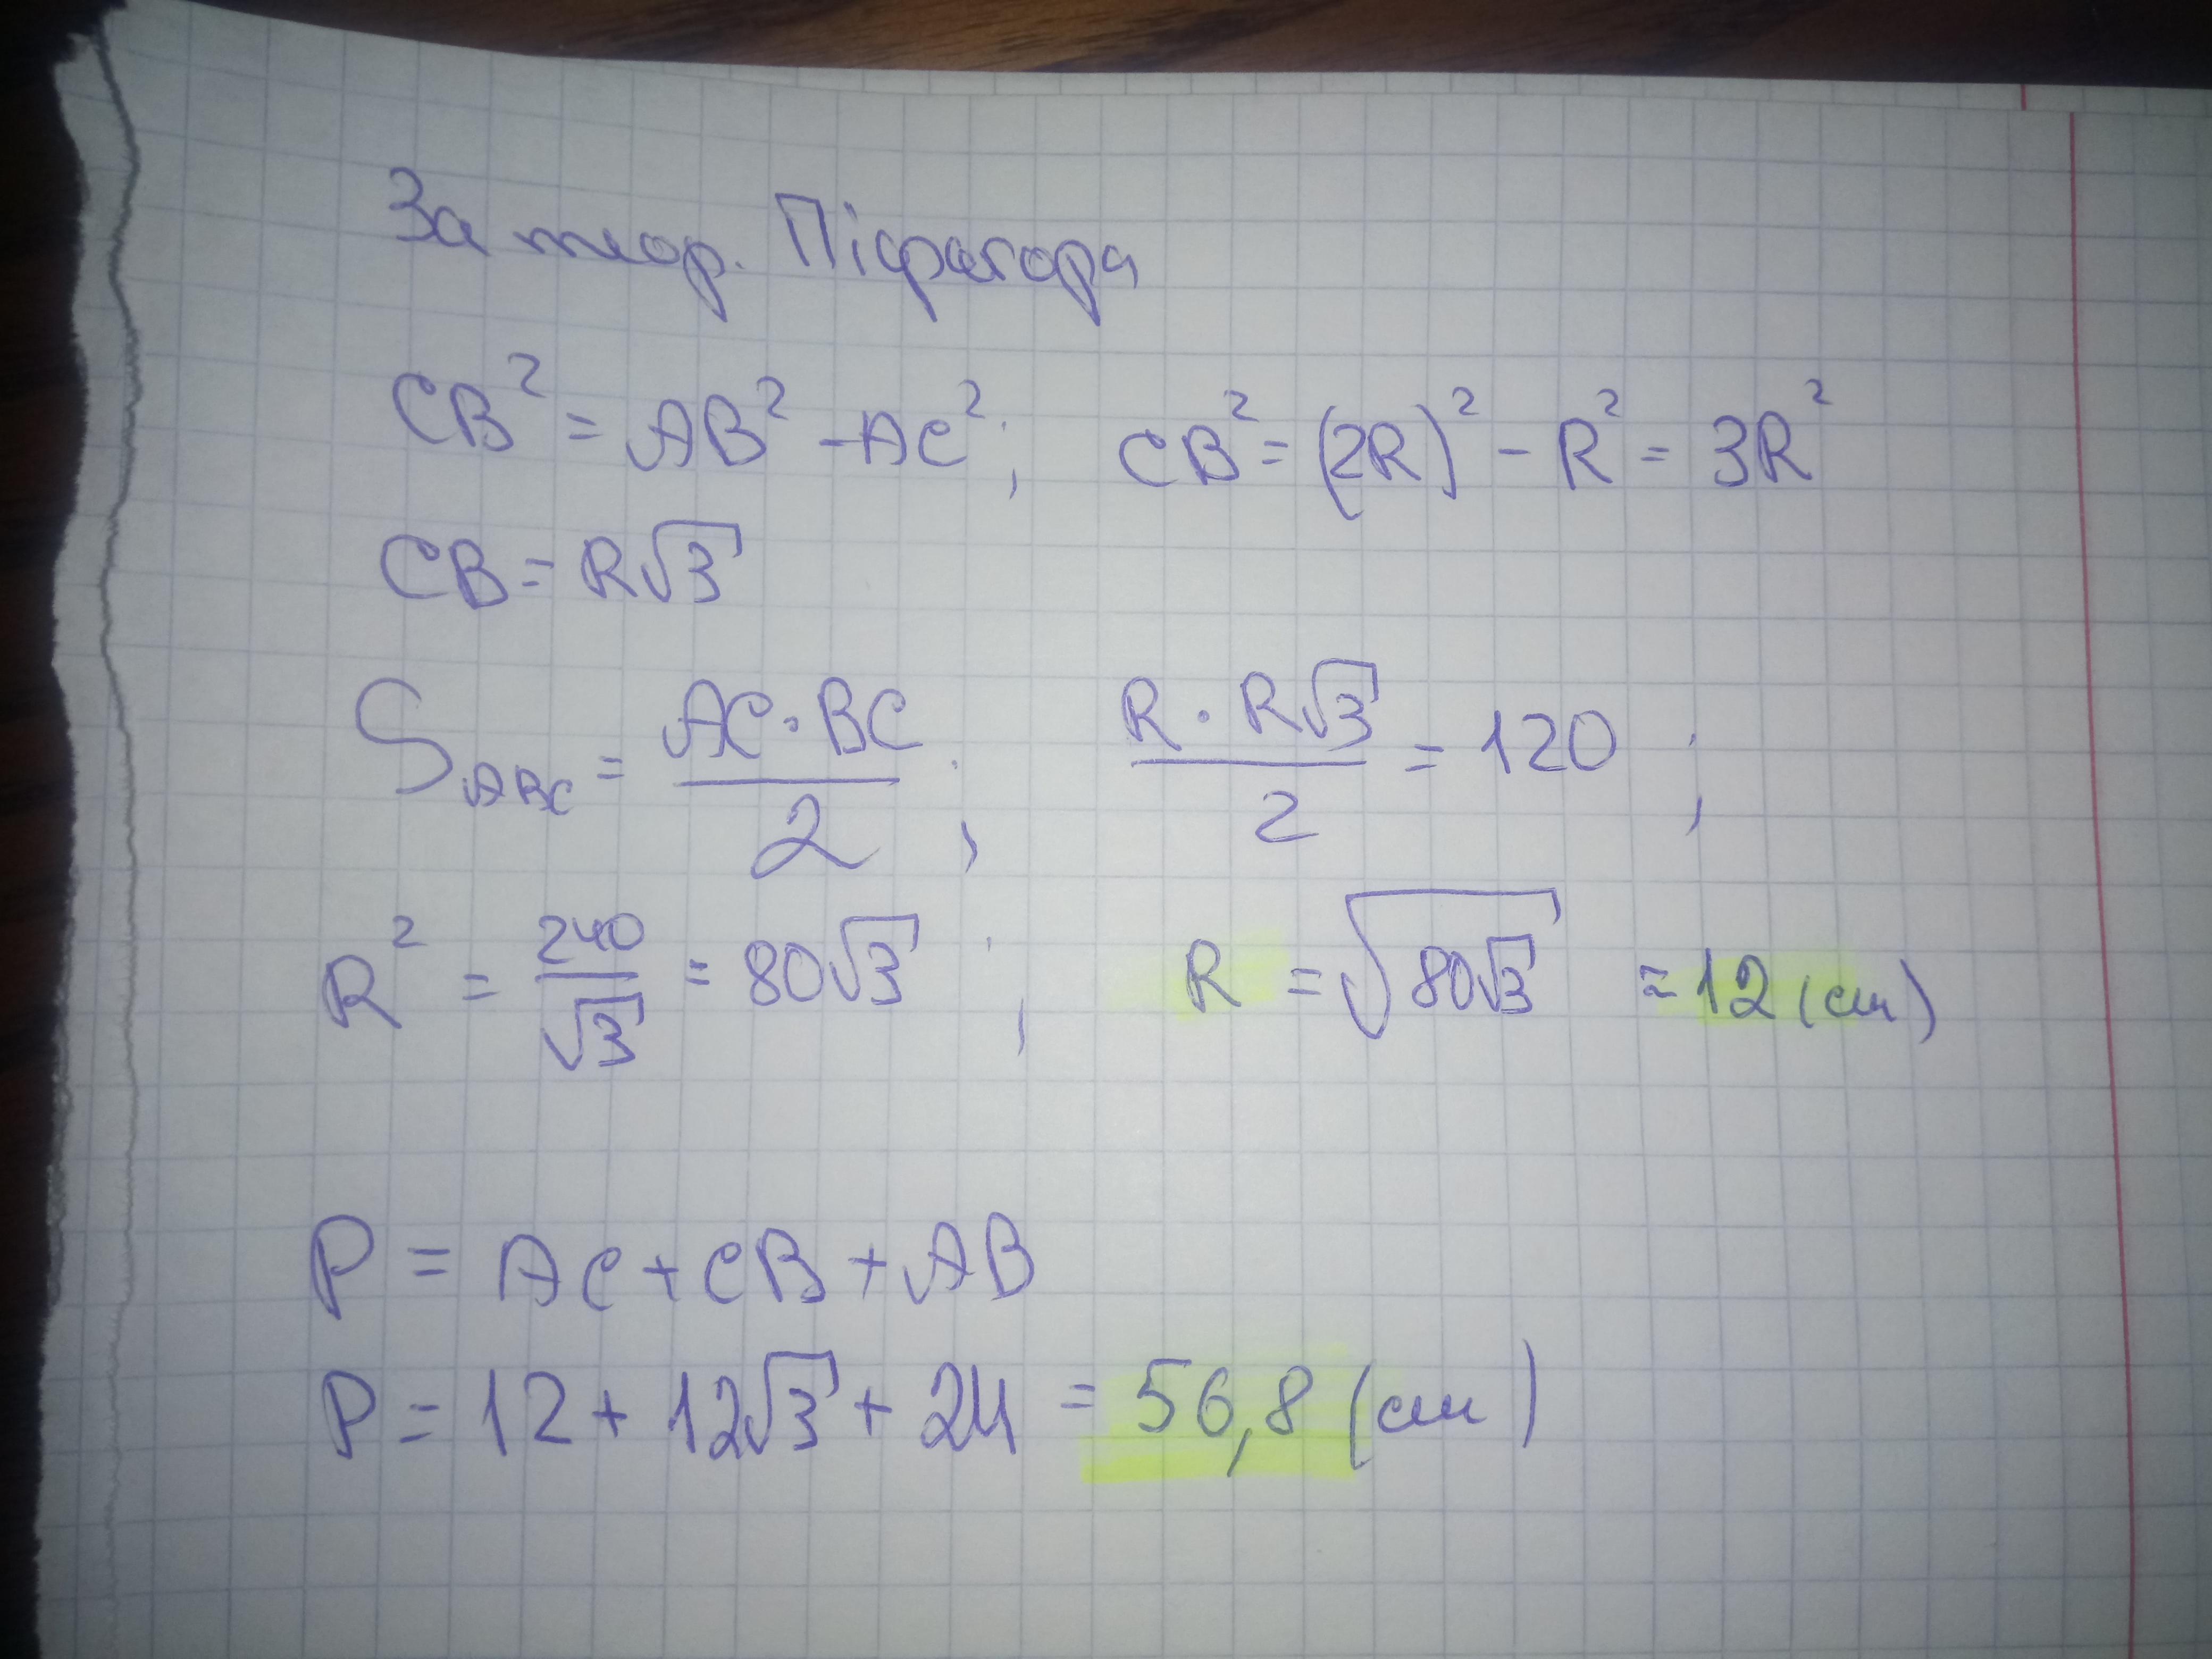 За теор. Піфагора
CB² = AB² - AC²; CB² = (2R)² - R² = 3R²
CB = R√3
S_ABC = AC·BC/2; R·R√3/2 = 120;
R² = 240/√3 = 80√3; R = √(80√3) ≈ 12 (см)
P = AC + CB + AB
P = 12 + 12√3 + 24 = 56,8 (см)